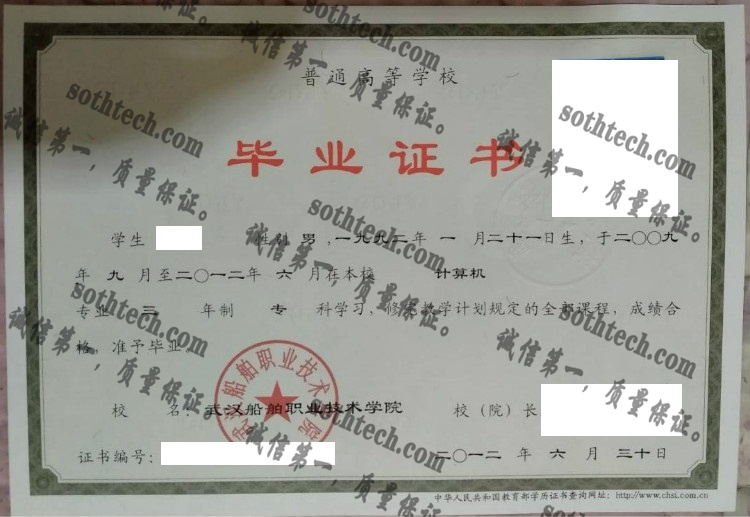 普通高等学校
毕业证书
学生 性别 男 ,一九九二年 一 月二十一日生，于二〇〇九
年 九 月至二〇一二年 六 月在本校 计算机
专业 三 年制 专 科学习，修完教学计划规定的全部课程，成绩合
格，准予毕业。
武汉船舶职业技术学院
校 名：武汉船舶职业技术学院 校（院）长
证书编号： 二〇一二 年 六 月 三十日
中华人民共和国教育部学历证书查询网址：http://www.chsi.com.cn
sothtech.com
诚信第一，质量保证。
sothtech.com
诚信第一，质量保证。
sothtech.com
诚信第一，质量保证。
sothtech.com
诚信第一，质量保证。
sothtech.com
诚信第一，质量保证。
sothtech.com
诚信第一，质量保证。
sothtech.com
诚信第一，质量保证。
sothtech.com
诚信第一，质量保证。